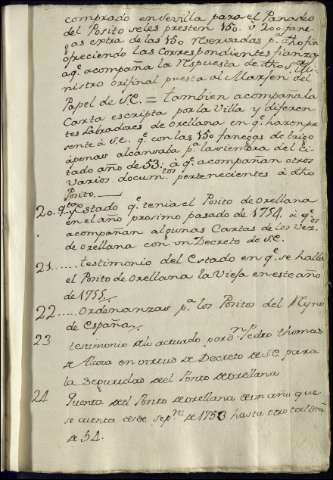 comprado en Sevilla para el Panadeo
del Posito seles presten 150. ó 200 fane-
gas extra de las 150 reservadas pª dho fin
ofreciendo las correspondientes fianzas
aq.e acompaña la Respuesta de dho
nistro orijinal puesta al Marjen del
Papel de S.E. = tambien acompaña la
Carta escripta por la Villa y diferen-
tes Labradores de Orellana en q.e hazen pre
sente à S.E. q.e con las 150 fanegas de trigo
apenas alcansaba pª la siembra del ci-
tado año de 53; à q.e acompañan otros
varios docum.tos pertenecientes à dho
Posito
20. Estado q.e tenia el Posito de Orellana
en el año proximo pasado de 1754. à q.e
acompañan algunas Cartas de los Vez.s
de Orellana con un Decreto de S.E.
21..... testimonio del Estado en q.e se halla
el Posito de Orellana la Vieja en este año
de 1755
22.... Ordenanzas pª los Positos del Reyno
de España
23 testimonio de lo actuado por D.n Pedro Thomas
de en virtud de Decreto de S.E. para
la Seguridad del Posito de Orellana
24 Quenta del Posito de Orellana de un año que
se cuenta desde Sep.re de 1753 hasta
de 54.